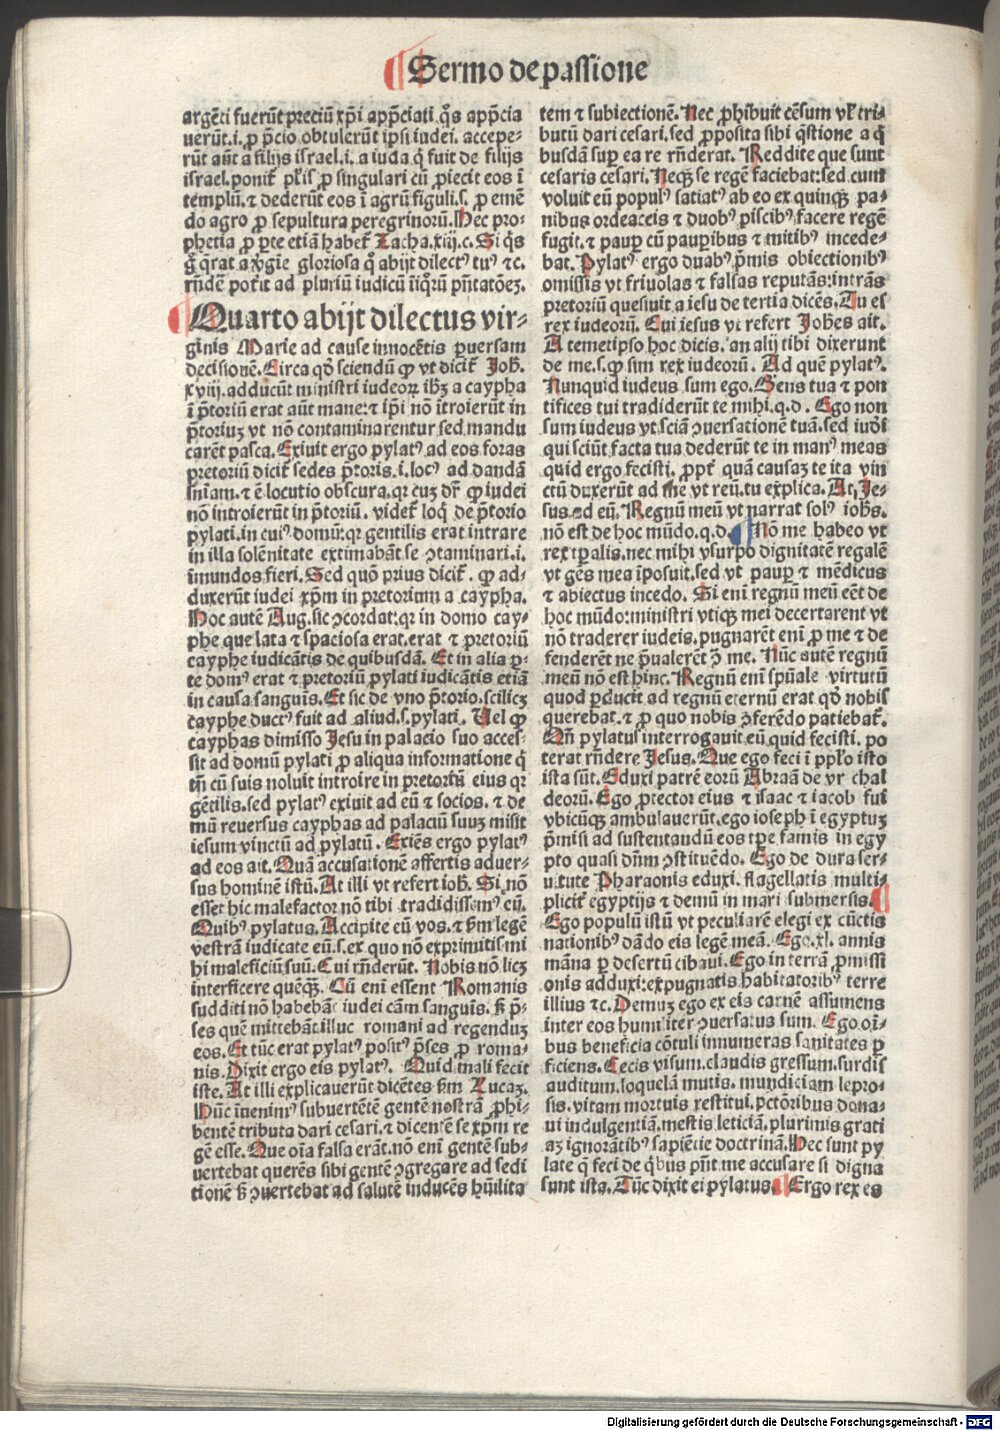 Sermo de passione
argēti fuerūt preciū xp̄i app̄ciati. q̄s app̄cia
uerūt.i. ꝓ p̄cio obtulerūt ip̄si iudei. accepe-
rūt aūt a filijs israel.i. a iuda q̄ fuit de filijs
israel. ponit̄ pl̄is ꝓ singulari cū ꝓiecit eos ī
templū. ⁊ dederūt eos ī agrū figuli.s. ꝓ emē
do agro ꝓ sepultura peregrinorū. Hec pro-
phetia ꝓ ꝑte etiā habet̄ Zacha. xiij.c. Si q̄s
g̊ q̄rat a v̓gīe gloriosa q̊ abijt dilectꝰ tuꝰ ⁊c.
rn̄dē pot̄it ad pluriū iudicū iīq̊rū pn̄tatōeꝫ.
Quarto abijt dilectus vir-
ginis Marie ad cause innocētis ꝑuersam
decisionē. Circa qd̄ sciendū ꝙ vt dicit̄ Joh̄.
xviij. adducūt ministri iudeoꝝ ih̄ꝫ a caypha
ī p̄toriū erat aūt mane: ⁊ ip̄i nō ītroierūt in
p̄toriuꝫ vt nō contaminarentur sed mandu
carēt pasca. Exiuit ergo pylatꝰ ad eos foras
pretoriū dicit̄ sedes p̄toris.i. locꝰ ad dandā
sn̄iam. ⁊ ē locutio obscura. qꝛ cuꝫ dr̄ ꝙ iudei
nō introierūt in p̄toriū. videt̄ loq̄ de p̄torio
pylati. in cuiꝰ domū: qꝛ gentilis erat intrare
in illa solēnitate extimabāt se ↄtaminari.i.
īmundos fieri. Sed quō prius dicit̄. ꝙ ad-
duxerūt iudei xp̄m in pretorium a caypha.
Hoc autē Aug. sic ↄcordat: qꝛ in domo cay-
phe que lata ⁊ spaciosa erat. erat ⁊ pretoriū
cayphe iudicātis de quibusdā. Et in alia ꝑ-
te domꝰ erat ⁊ pretoriū pylati iudicātis etiā
in causa sanguīs. Et sic de vno p̄torio. scilicꝫ
cayphe ductꝰ fuit ad aliud.s. pylati. Vel ꝙ
cayphas dimisso Jesu in palacio suo acces-
sit ad domū pylati ꝓ aliqua informatione q̄
tn̄ cū suis noluit introire in pretoriū eius qꝛ
gētilis. sed pylatꝰ exiuit ad eū ⁊ socios. ⁊ de
mū reuersus cayphas ad palaciū suuꝫ misit
iesum vinctū ad pylatū. Exiēs ergo pylatꝰ
ad eos ait. Quā accusationē affertis aduer-
sus hominē istū. At illi vt refert ioh̄. Si nō
esset hic malefactor nō tibi tradidissemꝰ eū.
Quibꝰ pylatus. Accipite eū vos. ⁊ ẜm legē
vestrā iudicate eū.s. ex quo nō exprimitis mi
hi maleficiū suū. Cui rn̄derūt. Nobis nō licꝫ
interficere quēq̄. Cū eni essent Romanis
sudditi nō habebāt iudei cām sanguīs. ẜ p̄-
ses quē mittebāt illuc romani ad regenduꝫ
eos. Et tūc erat pylatꝰ positꝰ p̄ses ꝓ roma-
nis. Dixit ergo eis pylatꝰ. Quid mali fecit
iste. At illi explicauerūt dicētes ẜm Lucaꝫ.
Hūc īuenimꝰ subuertētē gentē nostrā ꝓhi-
bentē tributa dari cesari. ⁊ dicentē se xp̄m re
gē esse. Que oīa falsa erāt. nō enī gentē sub-
uertebat querēs sibi gentē ↄgregare ad sedi
tionē ẜ ↄuertebat ad salutē inducēs hūilita
tem ⁊ subiectionē. Nec ꝓhibuit cēsum vl̓ tri-
butū dari cesari. sed ꝓposita sibi q̄stione a q̄
busdā suꝑ ea re rn̄derat. Reddite que sunt
cesaris cesari. Neqꝫ se regē faciebat: sed cum
voluit eū populꝰ satiatꝰ ab eo ex quinqꝫ pa-
nibus ordeaceis ⁊ duobꝰ piscibꝰ facere regē
fugit. ⁊ pauꝑ cū pauꝑibus ⁊ mitibꝰ incede-
bat. Pylatꝰ ergo duabꝰ p̄mis obiectionibꝰ
omissis vt friuolas ⁊ falsas reputās: intrās
pretoriū quesiuit a iesu de tertia dicēs. Tu es
rex iudeorū. Cui iesus vt refert Joh̄es ait.
A temetipso hoc dicis. an alij tibi dixerunt
de me.s. ꝙ sim rex iudeorū. Ad quē pylatꝰ.
Nunquid iudeus sum ego. Gens tua ⁊ pon
tifices tui tradiderūt te mihi.q.d. Ego non
sum iudeus vt sciā ↄuersationē tuā. sed iudei
qui sciūt facta tua dederūt te in manꝰ meas
quid ergo fecisti. ꝓpt̄ quā causaꝫ te ita vin
ctū duxerūt ad me vt reū. tu explica. At Je-
sus ad eū. Regnū meū vt narrat solꝰ ioh̄s.
nō est de hoc mūdo.q.d. Nō me habeo vt
rex tꝑalis. nec mihi vsurpo dignitatē regalē
vt gēs mea īposuit. sed vt pauꝑ ⁊ mēdicus
⁊ abiectus incedo. Si eni regnū meū eēt de
hoc mūdo: ministri vtiqꝫ mei decertarent vt
nō traderer iudeis. pugnarēt eni ꝓ me ⁊ de
fenderēt ne p̄ualerēt ↄ̄ me. Nūc autē regnū
meū nō est hinc. Regnū eni spūale virtutū
quod ꝑducit ad regnū eternū erat qd̄ nobis
querebat. ⁊ ꝓ quo nobis ↄferēdo patiebat̄.
Qn̄ pylatus interrogauit eū quid fecisti. po
terat rn̄dere Jesus. Que ego feci ī pp̄lo isto
ista sūt. Eduxi patrē eorū Abraā de vr chal
deorū. Ego ꝓtector eius ⁊ isaac ⁊ iacob fui
vbicūqꝫ ambulauerūt. ego ioseph ī egyptuꝫ
p̄misi ad sustentandū eos tꝑe famis in egy
pto quasi dn̄m ↄstituēdo. Ego de dura ser-
uitute Pharaonis eduxi. flagellatis multi-
plicit̄ egyptijs ⁊ demū in mari submersis.
Ego populū istū vt peculiarē elegi ex cūctis
nationibꝰ dādo eis legē meā. Ego. xl. annis
māna ꝑ desertū cibaui. Ego in terrā ꝓmissi
onis adduxi: expugnatis habitatoribꝰ terre
illius ⁊c. Demuꝫ ego ex eis carnē assumens
inter eos humiliter ↄuersatus sum. Ego oī-
bus beneficia cōtuli innumeras sanitates ꝑ
ficiens. Cecis visum. claudis gressum. surdis
auditum. loquelā mutis. mundiciam lepro-
sis. vitam mortuis restitui. pctōribus dona-
ui indulgentiā. mestis leticiā. plurimis grati
aꝫ ignorātibꝰ sapiētie doctrinā. Hec sunt py
late q̄ feci de q̄bus pn̄t me accusare si digna
sunt ista. Tūc dixit ei pylatus. Ergo rex es
Digitalisierung gefördert durch die Deutsche Forschungsgemeinschaft - DFG